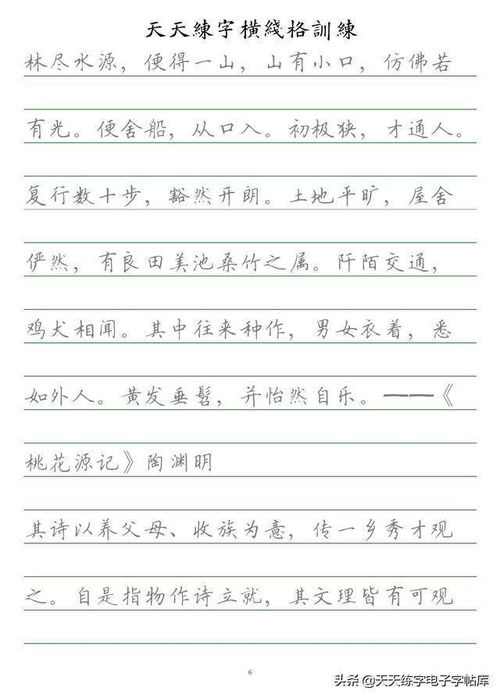 天天練字橫綫格訓練
林尽水源，便得一山，山有小口，仿佛若
有光。便舍船，从口入。初极狭，才通人。
复行数十步，豁然开朗。土地平旷，屋舍
俨然，有良田美池桑竹之属。阡陌交通，
鸡犬相闻。其中往来种作，男女衣着，悉
如外人。黄发垂髫，并怡然自乐。——《
桃花源记》陶渊明
其诗以养父母、收族为意，传一乡秀才观
之。自是指物作诗立就，其文理皆有可观
6
头条 @天天练字电子字帖库